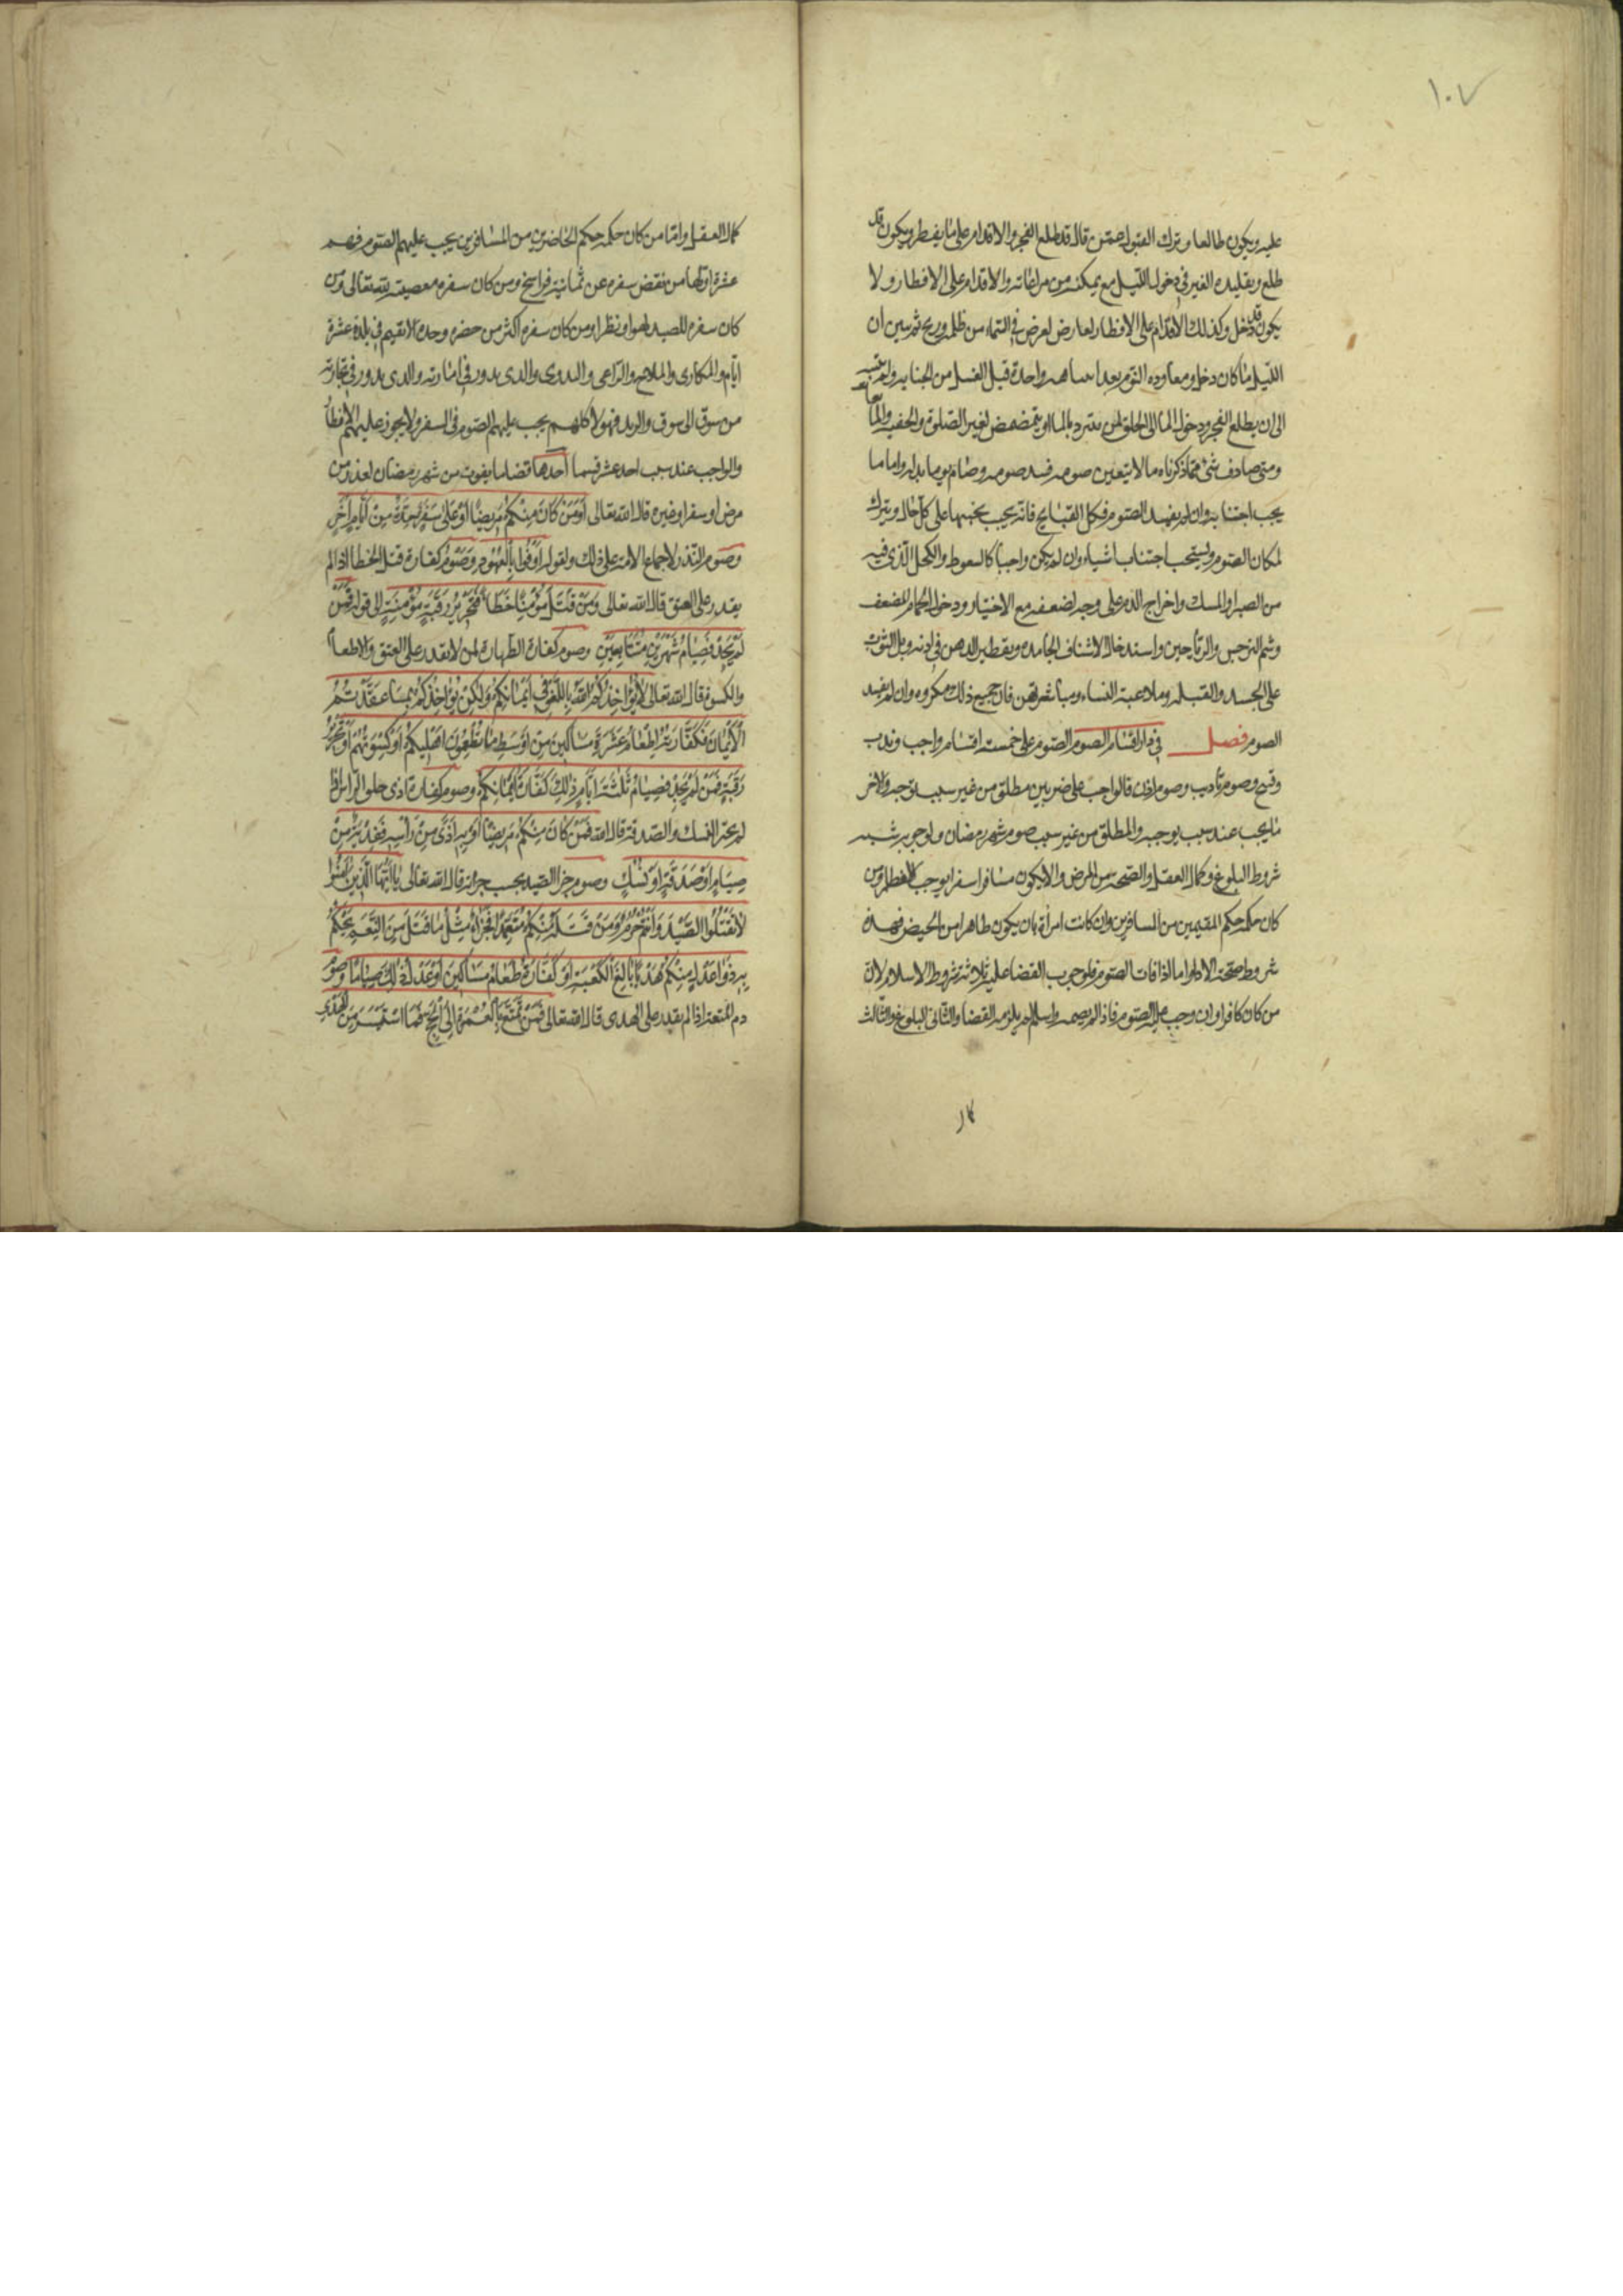 ١٠٧
عليه ويكون طالعا وترك القبول عمن قال قد طلع الفجر والاقدام على ما يفطر ويكون قد
طلع وتقليده الغير في دخول الليل مع تمكنه من مراعاته والاقدام على الافطار ولا
يكون قد دخل وكذلك الاقدام على الافطار لعارض لعرض في السماء من ظلمه وريح ثم تبين ان
الليل ما كان دخل ومعاوده النوم بعد انتباهه واحدة قبل الغسل من الجنابه ولم ينتبه
الى ان يطلع الفجر ودخول الما الى الحلق لمن يتبرد بالما او يتمضمض لغير الصلوة والحقنه بالمايعا
ومتى صادف شئ مما ذكرناه مالا يتعين صومه فسد صومه وصام يوما بدله واما ما
يجب اجتنابه وان لم يفسد الصوم فكل القبايح فانه يجب تجنبها على كل حال ويترك
لمكان الصوم ويستحب اجتناب اشياء وان لم يكن واجباً كالسعوط والكحل الذى فيه
من الصبر او المسك واخراج الدم على وجه لضعفه مع الاختيار ودخول الحمام المضعف
وشم النرجس والرياحين واستدخال الاشياف الجامده وتقطير الدهن في اذنه وبل الثوب
على الجسد والقبله وملاعبة النساء ومباشرتهن فان جميع ذلك مكروه وان لم يفسد
الصوم فصل في ذكر اقسام الصوم الصوم على خمسة اقسام واجب وندب
وقبيح وصوم تأديب وصوم اذن فالواجب على ضربين مطلق من غير سبب يوجبه والاخر
ما يجب عند سبب يوجبه والمطلق من غير سبب صوم شهر رمضان ولوجوبه ستة
شروط البلوغ وكمال العقل والصحة من المرض والا يكون مسافرا سفرا يوجب الفطر ومن
كان حكمه حكم المقيمين من المسافرين وان كانت امرأة بان يكون طاهرا من الحيض فهذه
شروط صحة الادا واما اذا فات الصوم فلوجوب القضا عليه ثلاثة شروط الاسلام لان
من كان كافرا وان وجب عليه الصوم فاذا لم يصمه واسلم لم يلزمه القضا والثانى البلوغ والثالث
كمال العقل واما من كان حكمه حكم الحاضرين من المسافرين يجب عليهم الصوم فهم
عشرة اولها من نقص سفره عن ثمانية فراسخ ومن كان سفره معصية لله تعالى ومن
كان سفره للصيد لهوا وبطرا ومن كان سفره اكثر من حضره وحده الا يقيم في بلده عشرة
ايام والمكارى والملاح والراعى والبدوى والذى يدور في امارته والذى يدور في تجارته
من سوق الى سوق والبريد فهولا كلهم يجب عليهم الصوم في السفر ولا يجوز عليهم الافطار
والواجب عند سبب احد عشر قسما احدها قضا ما يفوت من شهر رمضان لعذر من
مرض او سفر او غيره قال الله تعالى اَوَمَنْ كَانَ مِنْكُمْ مَرِيضًا اَوْ عَلَى سَفَرٍ فَعِدَّةٌ مِنْ اَيَّامٍ اُخَرَ
وصوم النذر لاجماع الامة على ذلك ولقوله اَوْفُوا بِالْعُهُودِ وَصَوْمُ كفارة قتل الخطا اذا لم
يقدر على العتق قال الله تعالى وَمَنْ قَتَلَ مُؤْمِنًا خَطَأً فَتَحْرِيرُ رَقَبَةٍ مُؤْمِنَةٍ الى قوله فَمَنْ
لَمْ يَجِدْ فَصِيَامُ شَهْرَيْنِ مُتَتَابِعَيْنِ وصوم كفارة الظهار لمن لا يقدر على العتق والاطعام
والكسوة قال الله تعالى لَا يُؤَاخِذُكُمُ اللّٰهُ بِاللَّغْوِ فِي اَيْمَانِكُمْ وَلٰكِنْ يُؤَاخِذُكُمْ بِمَا عَقَّدْتُمُ
الْاَيْمَانَ فَكَفَّارَتُهُ اِطْعَامُ عَشَرَةِ مَسَاكِينَ مِنْ اَوْسَطِ مَا تُطْعِمُونَ اَهْلِيكُمْ اَوْ كِسْوَتُهُمْ اَوْ تَحْرِيرُ
رَقَبَةٍ فَمَنْ لَمْ يَجِدْ فَصِيَامُ ثَلٰثَةِ اَيَّامٍ ذٰلِكَ كَفَّارَةُ اَيْمَانِكُمْ وصوم كفارة اذى حلق الراس اذا
لم يختر النسك والصدقة قال الله فَمَنْ كَانَ مِنْكُمْ مَرِيضًا اَوْ بِهِ اَذًى مِنْ رَأْسِهِ فَفِدْيَةٌ مِنْ
صِيَامٍ اَوْ صَدَقَةٍ اَوْ نُسُكٍ وصوم جزا الصيد بحسب جزائه قال الله تعالى يَا اَيُّهَا الَّذِينَ اٰمَنُوا
لَا تَقْتُلُوا الصَّيْدَ وَاَنْتُمْ حُرُمٌ وَمَنْ قَتَلَهُ مِنْكُمْ مُتَعَمِّدًا فَجَزَاءٌ مِثْلُ مَا قَتَلَ مِنَ النَّعَمِ يَحْكُمُ
بِهِ ذَوَا عَدْلٍ مِنْكُمْ هَدْيًا بَالِغَ الْكَعْبَةِ اَوْ كَفَّارَةٌ طَعَامُ مَسَاكِينَ اَوْ عَدْلُ ذٰلِكَ صِيَامًا وصوم
دم المتعة اذا لم يقدر على الهدى قال الله تعالى فَمَنْ تَمَتَّعَ بِالْعُمْرَةِ اِلَى الْحَجِّ فَمَا اسْتَيْسَرَ مِنَ الْهَدْيِ